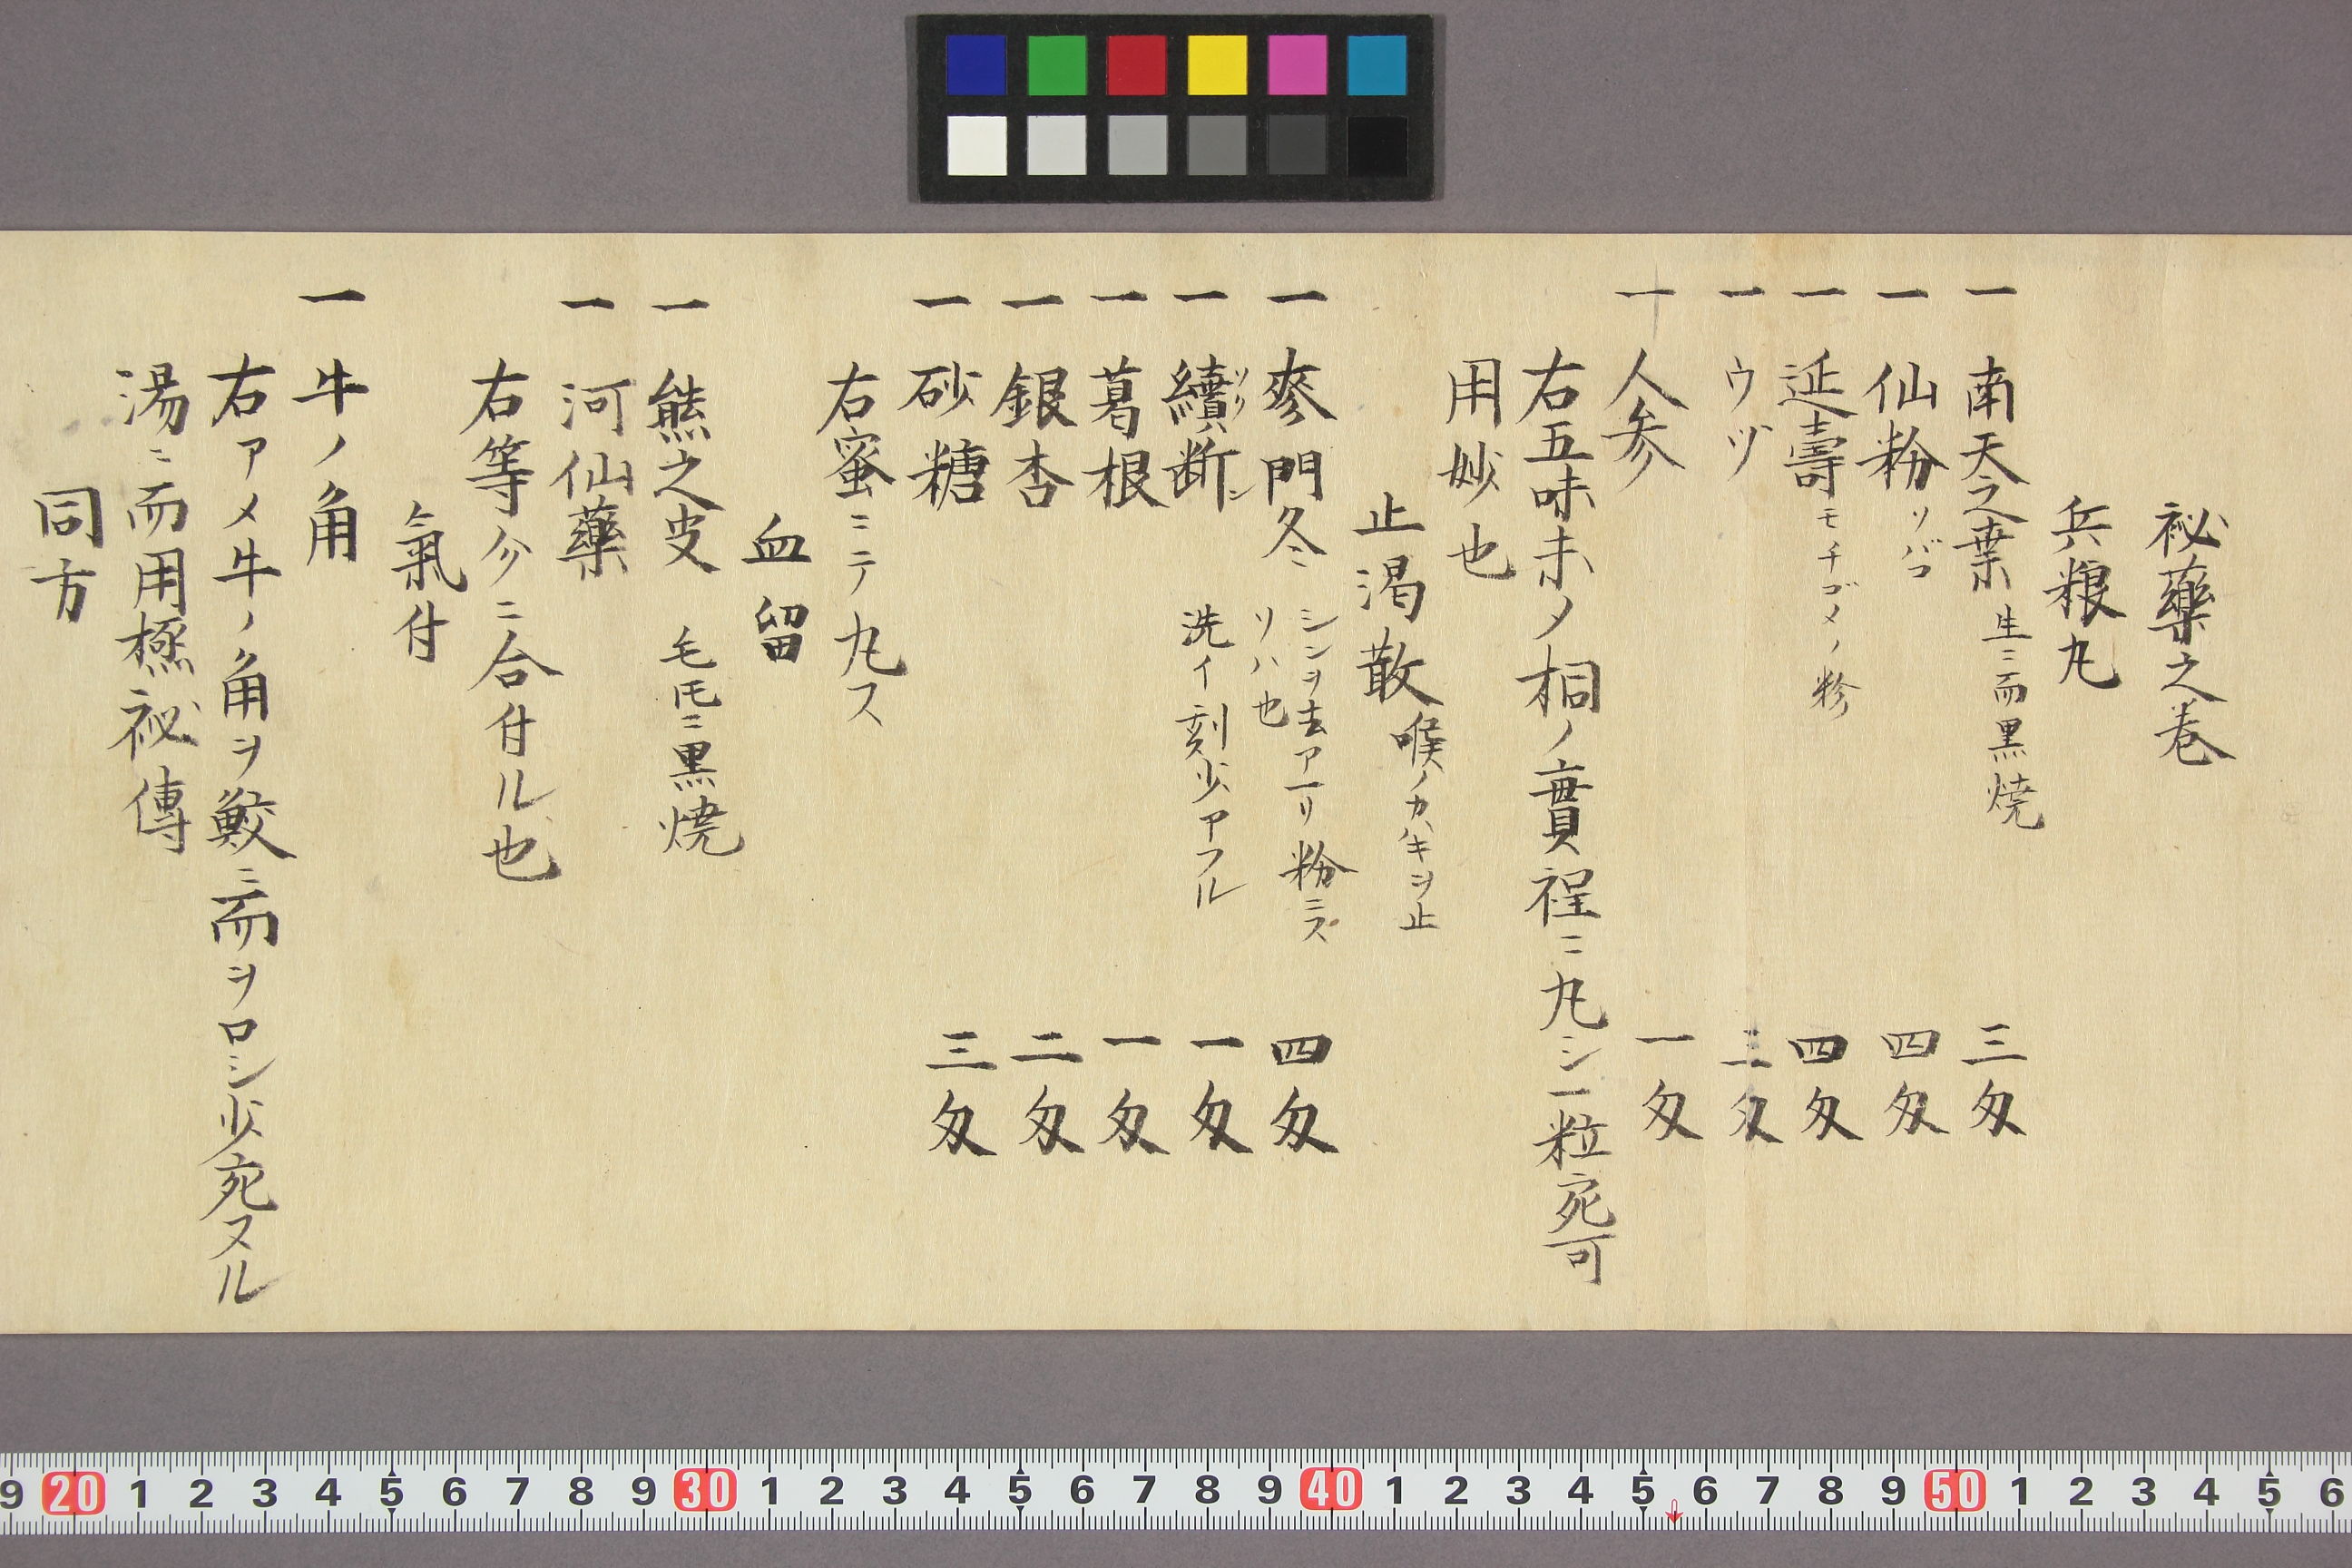 祕藥之巻
兵粮丸
一 南天之葉 生ニ而黒焼 三匁
一 仙粉 ソバコ 四匁
一 延壽 モチゴメノ粉 四匁
一 ウヅ 三匁
一 人参 一匁
右五味末〆桐ノ實程ニ丸シ一粒宛可
用妙也
止渇散 喉ノカハキヲ止
一 麥門冬 シンヲ去アーリ粉ニズ 四匁
リハ也
一 續断 洗イ刻少アフル 一匁
一 葛根 一匁
一 銀杏 二匁
一 砂糖 三匁
右蜜ニテ丸ス
血留
一 熊之皮 毛氏ニ黒焼
一 河仙藥
右等分ニ合付ル也
氣付
一 牛ノ角
右アメ牛ノ角ヲ鮫ニ而ヲロシ少宛ヌル
湯ニ而用極祕傳
同方
9 20 1 2 3 4 5 6 7 8 9 30 1 2 3 4 5 6 7 8 9 40 1 2 3 4 5 6 7 8 9 50 1 2 3 4 5 6